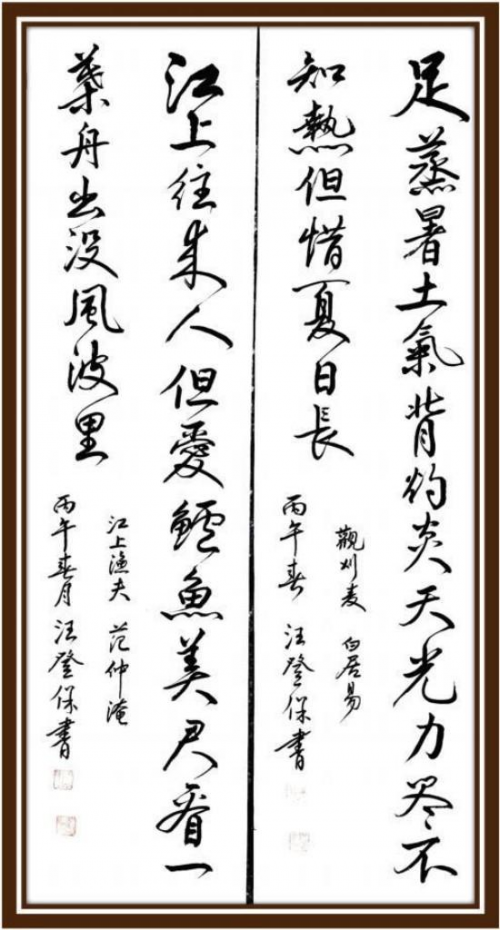 足蒸暑土氣背灼炎天光力尽不
知熱但惜夏日長
觀刈麦 白居易
丙午春 汪登保書
江上往来人但愛鱸魚美君看一
葉舟出没風波里
江上渔夫 范仲淹
丙午春月汪登保書